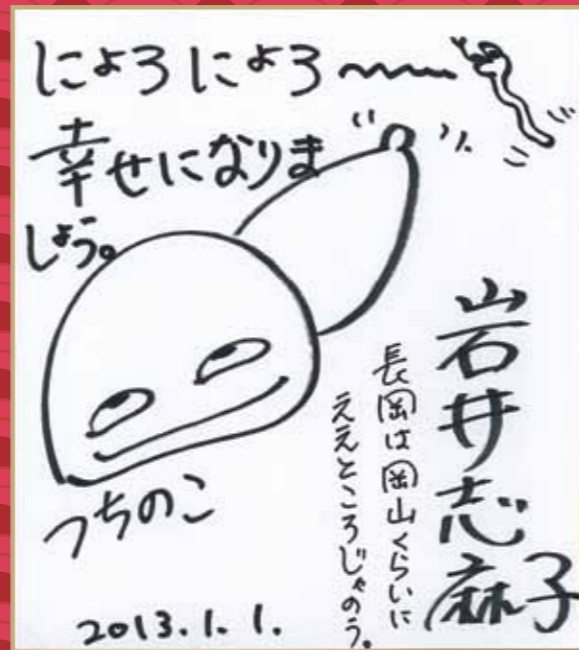 にょろにょろ〜
幸せになりま
しょう。
つちのこ
2013.1.1.
岩井志麻子
長岡は岡山くらいに
ええところじゃのう。